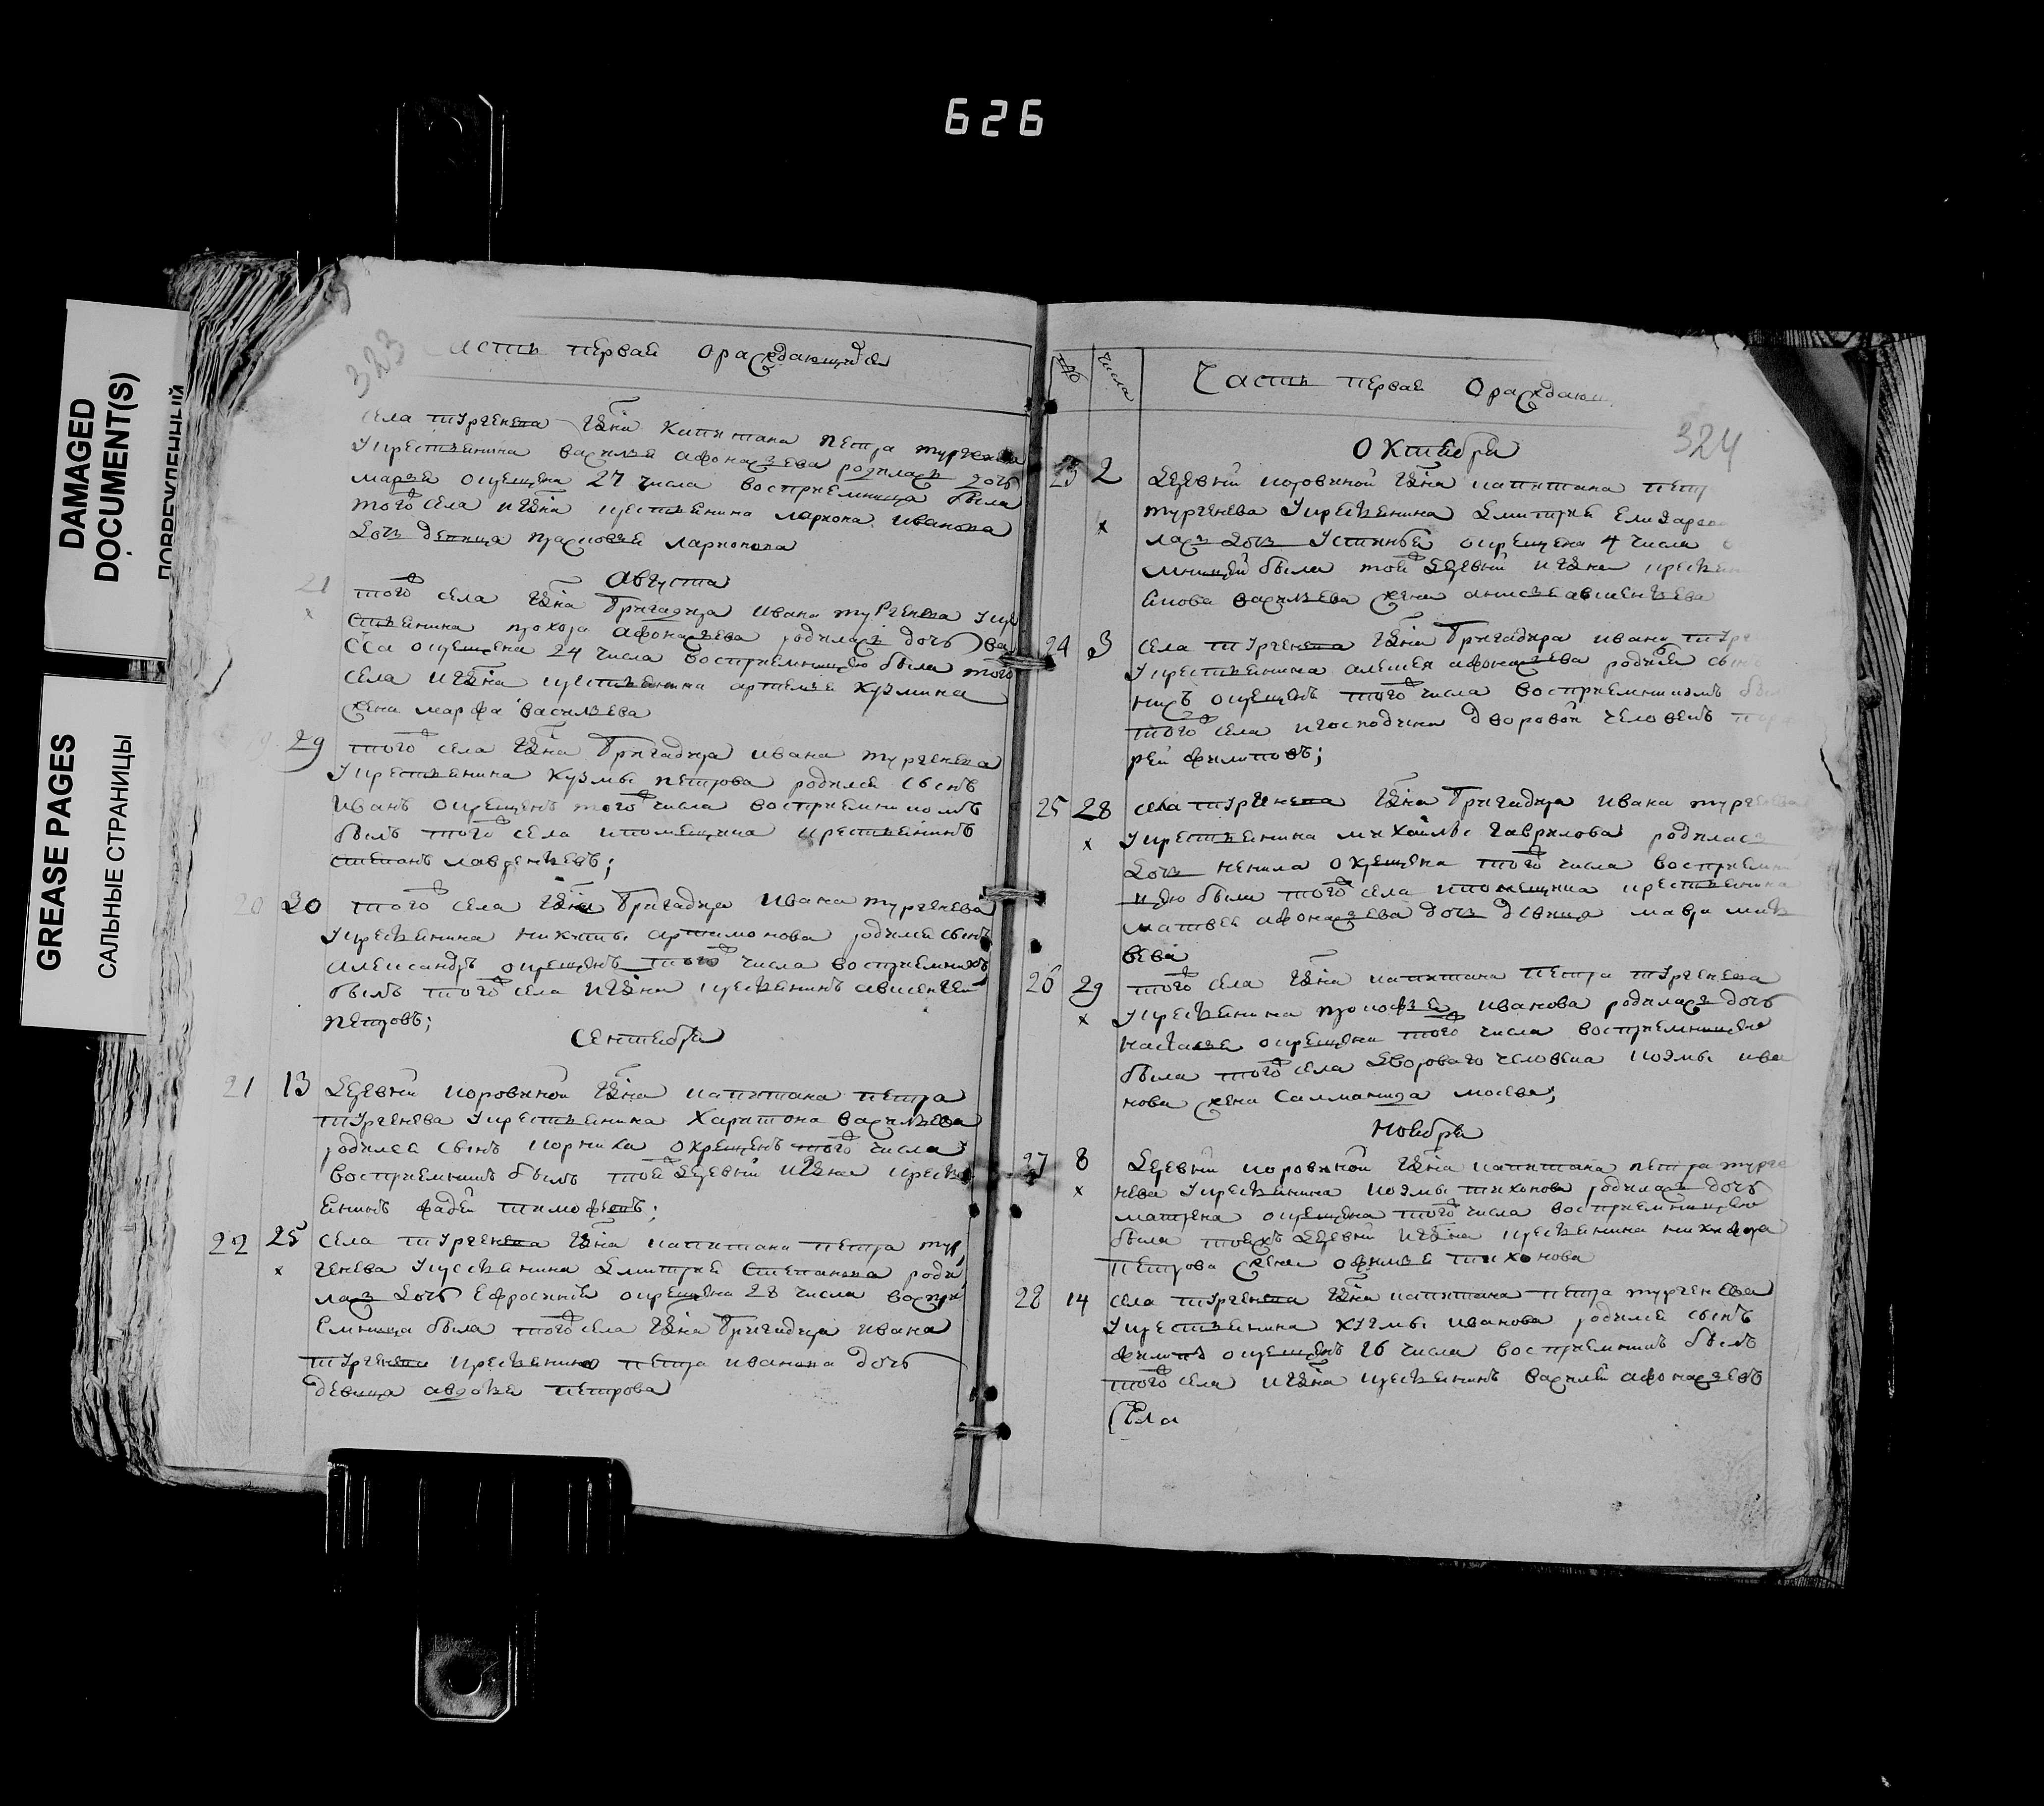 626
DAMAGED
DOCUMENT(S)
ПОВРЕЖДЕННЫЙ
GREASE PAGES
САЛЬНЫЕ СТРАНИЦЫ
323
асть первая ораждающихся
села тургенева Гдна капитана петра тургенева
укрестьянина василья афонасьева родилась дочь
марья окрещена 27 числа восприемница была
того села игдна крестьянина лариона иванова
дочь девица прасковья ларионова
Августа
21 того села Гдна бригадира ивана тургенева укре
стьянина прохора афонасьева родилась дочь ва
са окрещена 24 числа восприемницею была того
села игдна крестьянина артемья кузмина
жена марфа васильева
29 того села Гдна бригадира ивана тургенева
укрестьянина кузмы петрова родился сынъ
иванъ окрещенъ того числа восприемникомъ
былъ того села ипомещика крестьянинъ
степанъ лаврентьевъ;
20 30 того села Гдна бригадира ивана тургенева
укрестьянина никиты артимонова родился сынъ
александръ окрещенъ того числа восприемникъ
былъ того села игдна крестьянинъ авксентей
петровъ;
Сентября
21 13 деревни коровиной Гдна капитана петра
тургенева укрестьянина харитона васильева
родился сынъ корнила окрещенъ того числа
восприемникъ былъ той деревни игдна кресть
янинъ фадей тимофеевъ;
22 25 села тургенева Гдна капитана петра тур
х генева укрестьянина дмитрея степанова роди
лась дочь ефросинья окрещена 28 числа воспри
емница была того села Гдна бригадира ивана
тургенева крестьянина петра иванова дочь
девица авдотья петрова
числа
Часть первая Ораждающ
324
Октября
23 2 деревни коровиной Гдна капитана петр
тургенева укрестьянина дмитрея елизарова
х лась дочь устинья окрещена 4 числа
мницей была той деревни игдна крестьян
васильева жена анисья авксентьева
24 3 села тургенева Гдна бригадира ивана тург
укрестьянина алексея афонасьева родился сынъ
окрещенъ того числа восприемникомъ бы
того села игосподина дворовой человекъ
рей филиповъ;
25 28 села тургенева Гдна бригадира ивана тургенева
х укрестьянина михайлы гаврилова родилась
дочь ненила окрещена того числа восприемни
цею была того села ипомещика крестьянина
матвея афонасьева дочь девица мавра мат
вева
26 29 того села Гдна капитана петра тургенева
х укрестьянина прокофья иванова родилась дочь
настасья окрещена того числа восприемницею
была того села двороваго человека козмы ива
нова жена саламанида мосева;
Ноября
27 8 деревни коровиной Гдна капитана петра турге
х нева укрестьянина козмы тихонова родилась дочь
матрена окрещена того числа восприемницею
была тоежъ деревни игдна крестьянина никифора
петрова жена офимья тихонова
28 14 села тургенева Гдна капитана петра тургенева
укрестьянина кузмы иванова родился сынъ
филипъ окрещенъ 16 числа восприемникъ былъ
того села игдна крестьянинъ василей афонасьевъ
Села